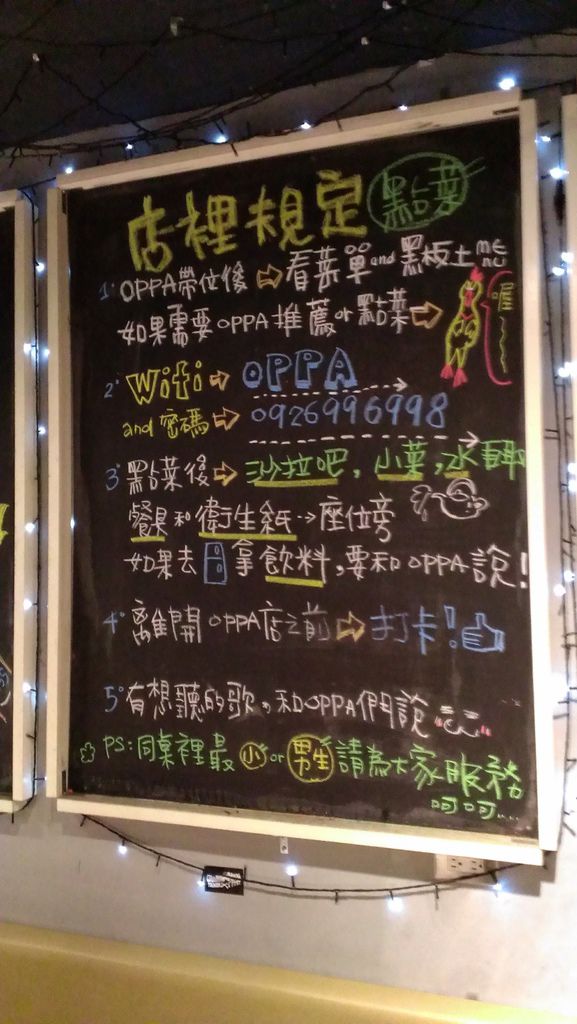 店裡規定 點菜
1° OPPA帶位後⇨看菜單and黑板土menu
如果需要OPPA推薦or點菜⇨ 喔~
2° Wifi⇨OPPA
and 密碼⇨0926996998
3° 點菜後⇨沙拉吧,小菜,水
餐具和衛生紙→座位旁
如果去拿飲料,要和OPPA說!
4° 離開OPPA店之前⇨打卡!
5° 有想聽的歌,和OPPA們說
PS:同桌裡最小or男生請為大家服務
呵呵...